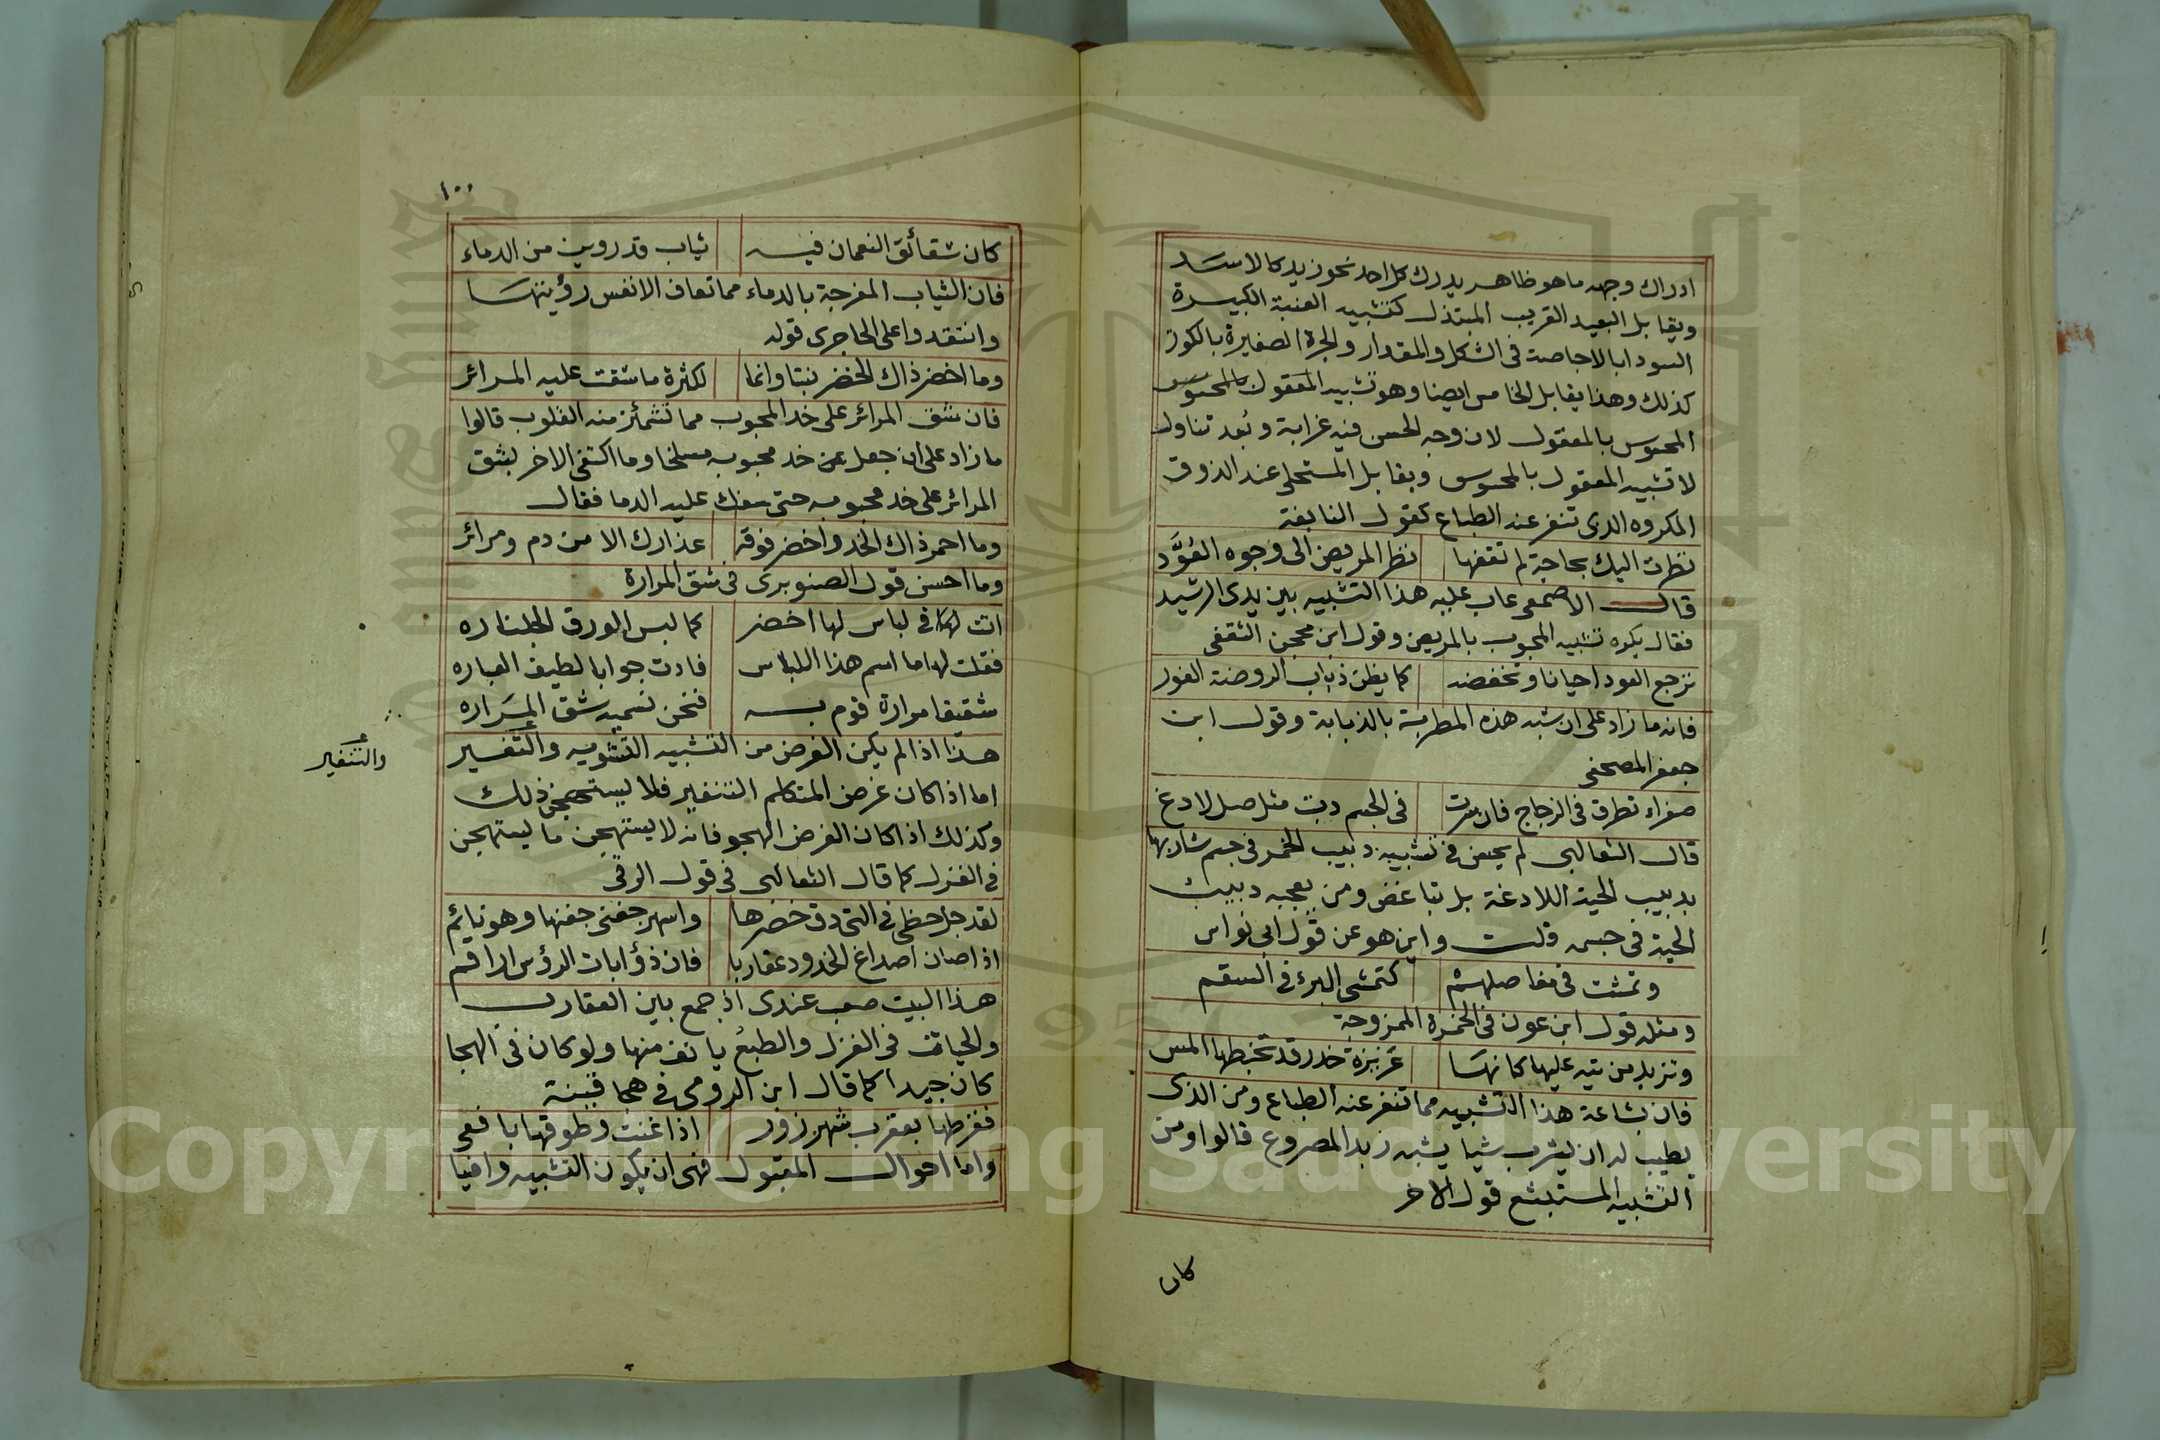 ادراك وجهه ما هو ظاهر يدرك كل احد نحو زيد كالاسد
ويقابل البعيد القريب المبتذل كتشبيه العنبة الكبيرة
السودا بالاجاصة فى الشكل والمقدار والجرة الصغيرة بالكوز
كذلك وهذا يقابل الخامس ايضا وهو تشبيه المعقول بالمحسوس
المحسوس بالمعقول لان وجه الحسن فيه غرابة وبُعد تناول
لا تشبيه المعقول بالمحسوس ويقابل المستحلى عند الذوق
المكروه الذى تنفر عنه الطباع كقول النابغة
نظرت اليك بحاجة لم تقضها نظر المريض الى وجوه العُوَّد
قال الاصمعى عاب عليه هذا التشبيه بين يدى الرشيد
فقال يكره تشبيه المحبوب بالمريض وقول ابن محجن الثقفى
ترجع العود احيانا وتخفضه كما يطن ذباب الروضة الغور
فانه ما زاد على ان شبه هذه المطربة بالذبابة وقول ابن
جعفر المصحفى
صفراء تطرق فى الزجاج فان سرت فى الجسم دبت مثل صل لادغ
قال الثعالبى لم يحسن فى تشبيه دبيب الخمر فى جسم شاربها
بدبيب الحية اللادغة بل تباغض ومن يعجبه دبيب
الحية فى جسمه قلت واين هو عن قول ابى نواس
وتمشت فى مفاصلهم كتمشى البرء فى السقم
ومثله قول ابن عون فى الخمرة الممزوجة
وتزبد من تيه عليها كانها غزيزة خدر قد تخبطها المس
فان بشاعة هذا التشبيه مما تنفر عنه الطباع ومن الذى
يطيب له ان يشرب شيا يشبه زبد المصروع قالوا ومن
التشبيه المستبشع قول الاخر
كان
١٠٠
كان شقائق النعمان فيه ثياب قد روين من الدماء
فان الثياب المضرجة بالدماء مما تعاف الانفس رؤيتها
وانتقدوا على الحاجرى قوله
وما اخضر ذاك الخضر نبتا وانما لكثرة ما شقت عليه المرائر
فان شق المرائر على خد المحبوب مما تشمئز منه القلوب قالوا
ما زاد على ان جعل خد محبوبه مسلخا وما اكتفى الاخر بشق
المرائر على خد محبوبه حتى سفك عليه الدما فقال
وما احمر ذاك الخد واخضر فوقه عذارك الا من دم ومرائر
وما احسن قول الصنوبرى فى شق المرارة
اتت فى لباس لها اخضر كما لبس الورق الجلناره
فقلت لها ما اسم هذا اللباس فادت جوابا لطيف العباره
شققنا مرارة قوم به فنحن نسميه شق المَراره
هذا اذا لم يكن الغرض من التشبيه التشويه والتنفير
والتنفير
اما اذا كان غرض المتكلم التنفير فلا يستهجن ذلك
وكذلك اذا كان الغرض الهجو فانه لا يستهجن ما يستهجن
فى الغزل كما قال الثعالبى فى قول الرقى
لقد جل حظى فى التى دق خضرها واسهر جفنى جفنها وهو نايم
اذا صان اصداغ الخدود عقاربا فان ذؤابات الرؤس اراقم
هذا البيت صعب عندى اذ جمع بين العقارب
والحيات فى الغزل والطبع يانف منها ولو كان فى الهجا
كان جيدا كما قال ابن الرومى فى هجا قينة
فقرطها بعقرب شهرزور اذا غنت وطوقها بافعى
واما احوال المقبول فهى ان يكون التشبيه وافيا
Copyright © King Saud University
1957